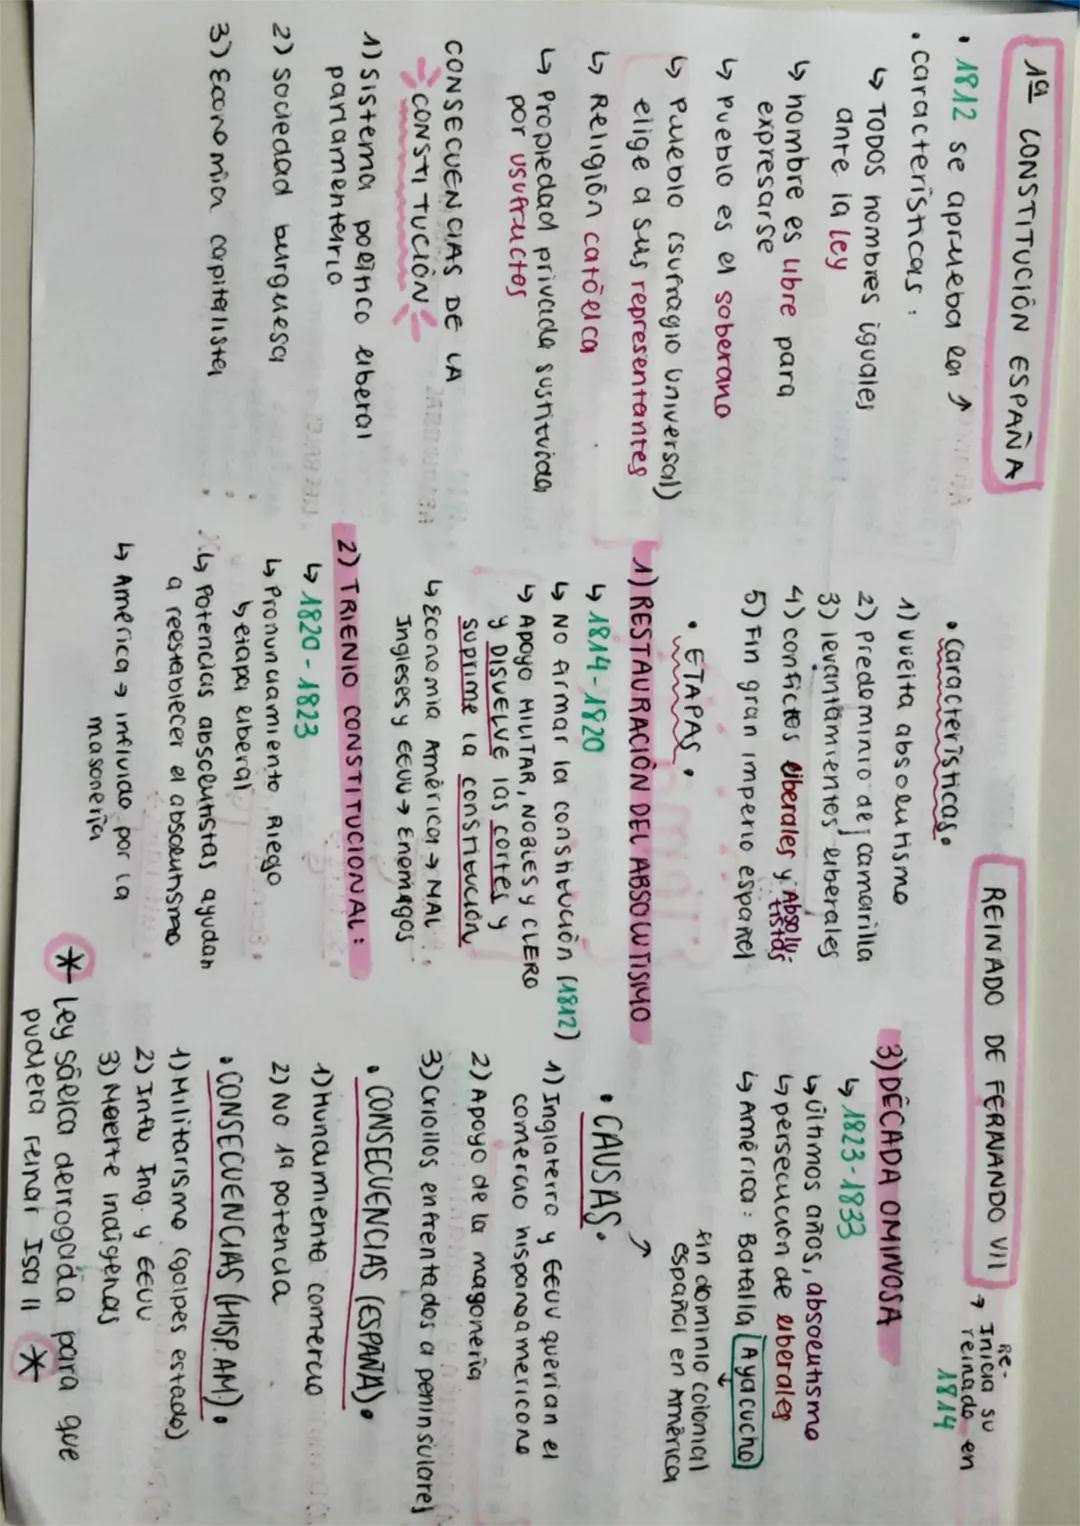 1ª CONSTITUCIÓN ESPAÑA
• 1812 se aprueba la
• características:
↳ TODOS hombres iguales
ante la ley
↳ hombre es libre para
expresarse
↳ pueblo es el soberano
↳ pueblo (sufragio universal)
elige a sus representantes
↳ Religión católica
↳ Propiedad privada sustituida
por usufructos
CONSECUENCIAS DE LA
CONSTITUCIÓN
1) Sistema político liberal
parlamentario
2) Sociedad burguesa
3) Economía capitalista
REINADO DE FERNANDO VII → Re-
Inicia su
reinado en
1814
• Características •
1) Vuelta absolutismo
2) Predominio de camarilla
3) levantamientos liberales
4) conflictos liberales y Absolu-
tistas
5) Fin gran imperio español
• ETAPAS •
1) RESTAURACIÓN DEL ABSOLUTISMO
↳ 1814-1820
↳ No firmar la constitución (1812)
↳ Apoyo MILITAR, NOBLES y CLERO
y DISUELVE las cortes y
suprime la constitución
↳ Economía América → MAL
Ingleses y EEUU → Enemigos
2) TRIENIO CONSTITUCIONAL:
↳ 1820-1823
↳ Pronunciamiento Riego
↳ etapa liberal
↳ Potencias absolutistas ayudan
a reestablecer el absolutismo
↳ América → influido por la
masonería
3) DÉCADA OMINOSA
↳ 1823-1833
↳ Últimos años, absolutismo
↳ persecución de liberales
↳ América: Batalla Ayacucho
↓
fin dominio colonial
español en América
• CAUSAS •
1) Inglaterra y EEUU querían el
comercio hispanoamericano
2) Apoyo de la magonería
3) Criollos enfrentados a peninsulares
• CONSECUENCIAS (ESPAÑA) •
1) Hundimiento comercio
2) No 1ª potencia
• CONSECUENCIAS (HISP.AM.) •
1) Militarismo (golpes estado)
2) Influ Ing. y EEUU
3) Muerte indígenas
* Ley sálica derrogada para que
pudiera reinar Isa II *